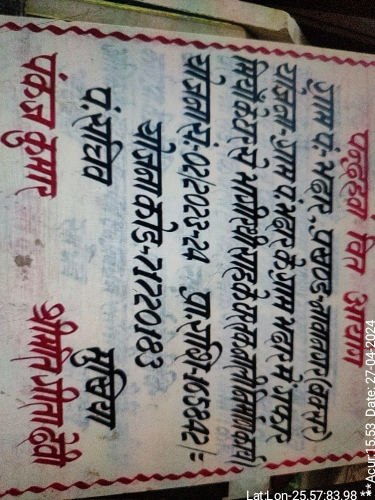 पन्द्रहवां वित आयोग
ग्राम पं.-भदार, प्रखण्ड-नावानगर (बक्सर)
योजना- ग्राम पं. भदार के ग्राम भदार में जफीर
मियाँ के घर से भागीरथी साह के घर तक नाली निर्माण कार्य।
योजना सं.-02/2023-24 प्रा. राशि-165842/=
योजना कोड-71720183
पं. सचिव मुखिया
पंकज कुमार श्रीमति गीता देवी
Lat:Lon-25.57:83.98 ***Acur:15.53 Date: 27-04-2024